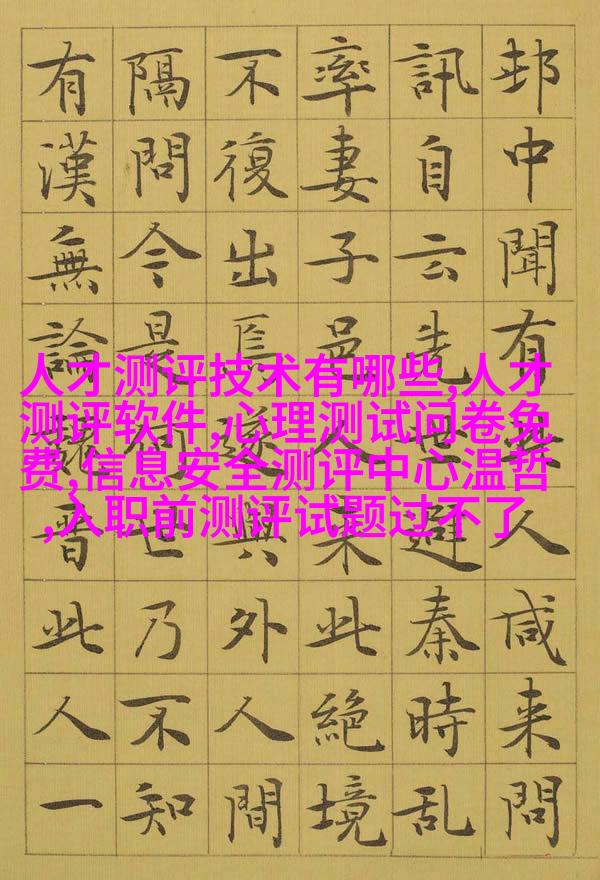 邨中聞有人咸来問
訊自云先世避秦時乱
率妻子邑人来此絶境
不復出焉遂與外人間
隔問今是何世乃不知
有漢無論魏晋此人一
人才测评技术有哪些,人才
测评软件,心理测试问卷免
费,信息安全测评中心温哲
,入职前测评试题过不了